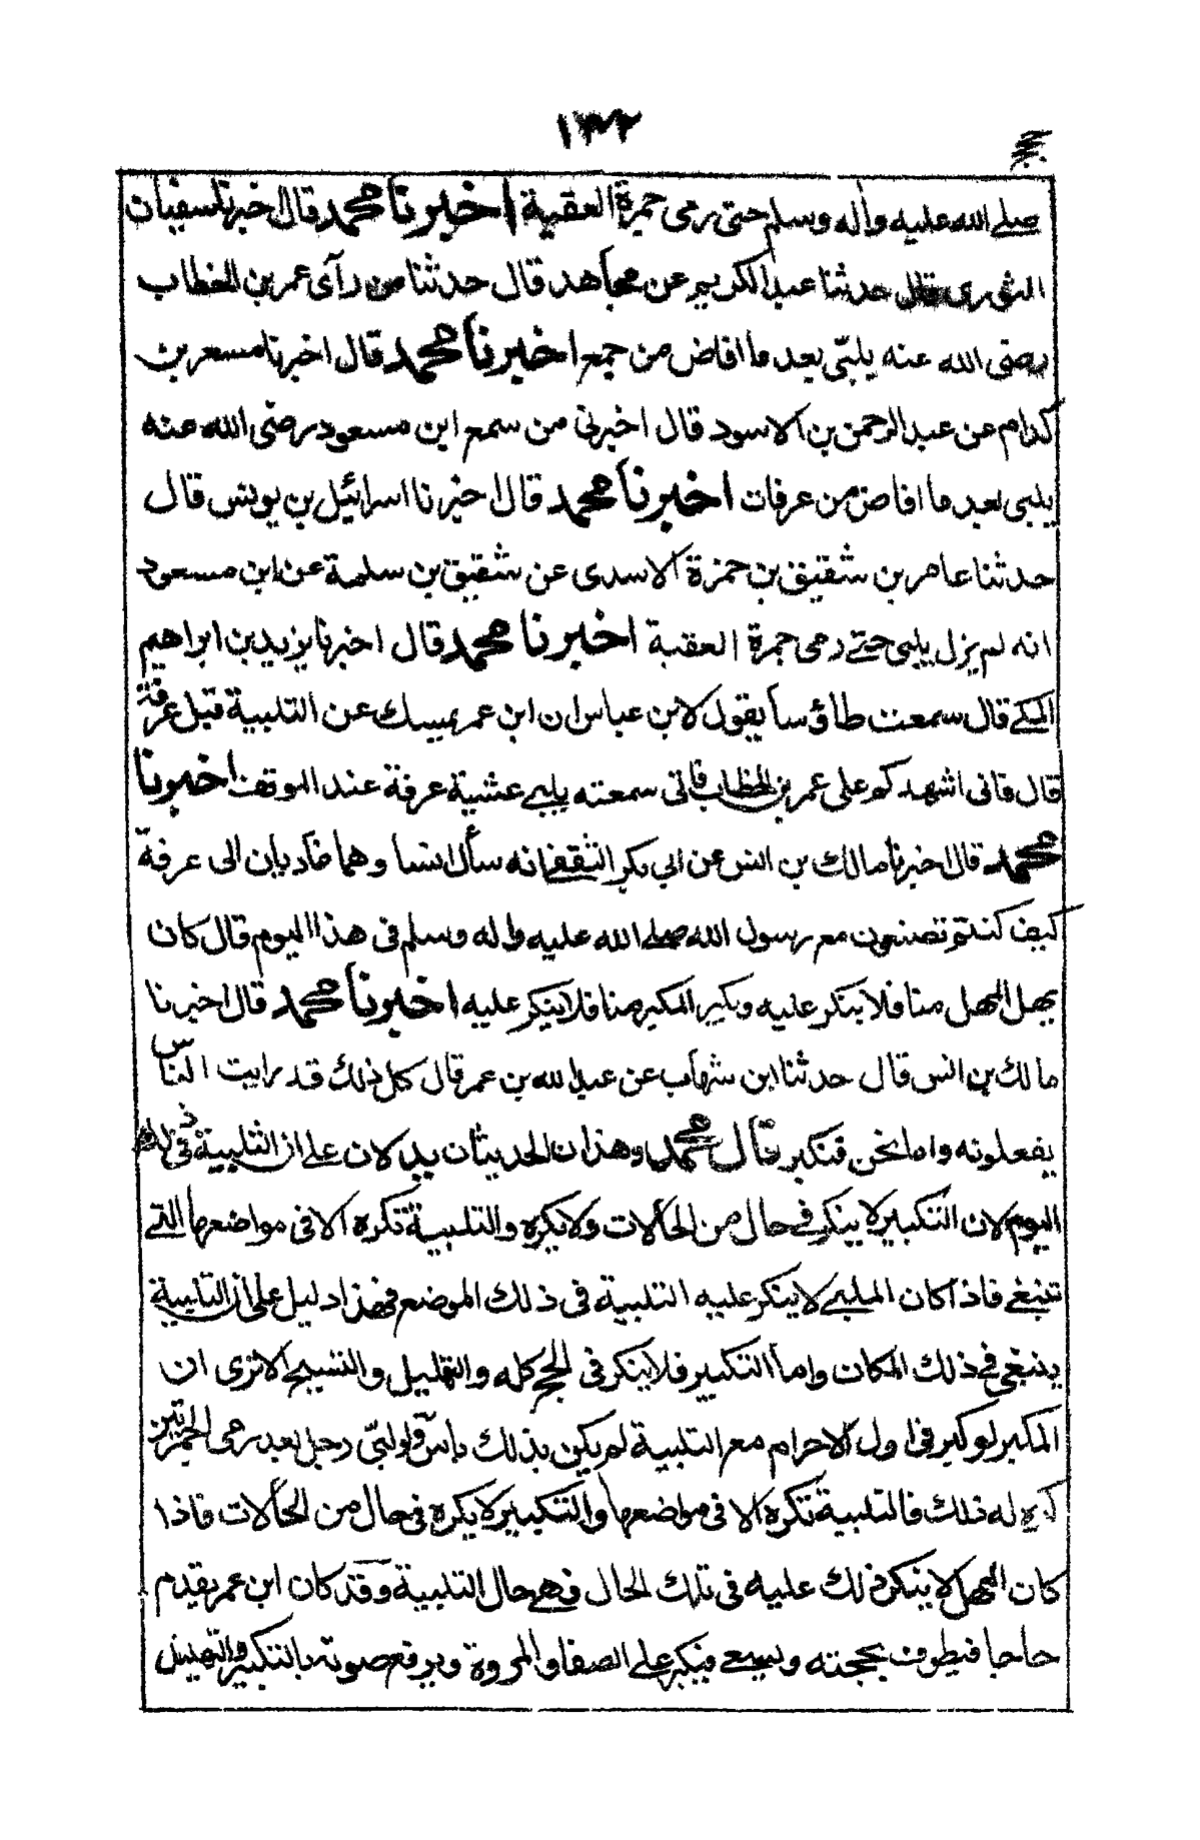 ١٣٢
صلى الله عليه وآله وسلم حتى رمى جمرة العقبة اخبرنا محمد قال اخبرنا سفيان
الثورى قال حدثنا عبد الكريم عن مجاهد قال حدثنا من رآى عمر بن الخطاب
رضى الله عنه يلبّى بعد ما افاض من جمع اخبرنا محمد قال اخبرنا مسعر بن
كدام عن عبد الرحمن بن الاسود قال اخبرنى من سمع ابن مسعود رضى الله عنه
يلبى بعد ما افاض من عرفات اخبرنا محمد قال اخبرنا اسرائيل بن يونس قال
حدثنا عامر بن شقيق بن حمزة الاسدى عن شقيق بن سلمة عن ابن مسعود
انه لم يزل يلبى حتى رمى جمرة العقبة اخبرنا محمد قال اخبرنا يزيد بن ابراهيم
المكى قال سمعت طاؤسا يقول لابن عباس ان ابن عمر يمسك عن التلبية قبل عرفة
قال فانى اشهدكم على عمر بن الخطاب فانى سمعته يلبى عشية عرفة عند الموقف اخبرنا
محمد قال اخبرنا مالك بن انس عن ابي بكر الثقفى انه سأل انسا وهما غاديان الى عرفة
كيف كنتم تصنعون مع رسول الله صلى الله عليه واله وسلم فى هذا اليوم قال كان
يهل المهل منا فلا ينكر عليه ويكبر المكبر منا فلا ينكر عليه اخبرنا محمد قال اخبرنا
مالك بن انس قال حدثنا ابن شهاب عن عبد الله بن عمر قال كل ذلك قد رايت الناس
يفعلونه واما نحن فنكبر قال محمد وهذان الحديثان يدلان على ان التلبية فى ذلك
اليوم لان التكبير لا ينكر فى حال من الحالات ولا يكره والتلبية تكره الا فى مواضعها التى
تنبغى فاذا كان الملبى لا ينكر عليه التلبية فى ذلك الموضع فهذا دليل على ان التلبية
ينبغى فى ذلك المكان واما التكبير فلا ينكر فى الحج كله والتهليل والتسبيح الا ترى ان
المكبر لو كبر فى اول الاحرام مع التلبية لم يكن بذلك باس ولو لبّى رجل بعد رمى الجمرتين
كره له ذلك فالتلبية تكره الا فى مواضعها والتكبير لا يكره فى حال من الحالات فاذا
كان المهل لا ينكر ذلك عليه فى تلك الحال فهى حال التلبية وقد كان ابن عمر يقدم
حاجا فيطوف بحجته ويسعى فيكبر على الصفا والمروة ويرفع صوته بالتكبير والتهليل